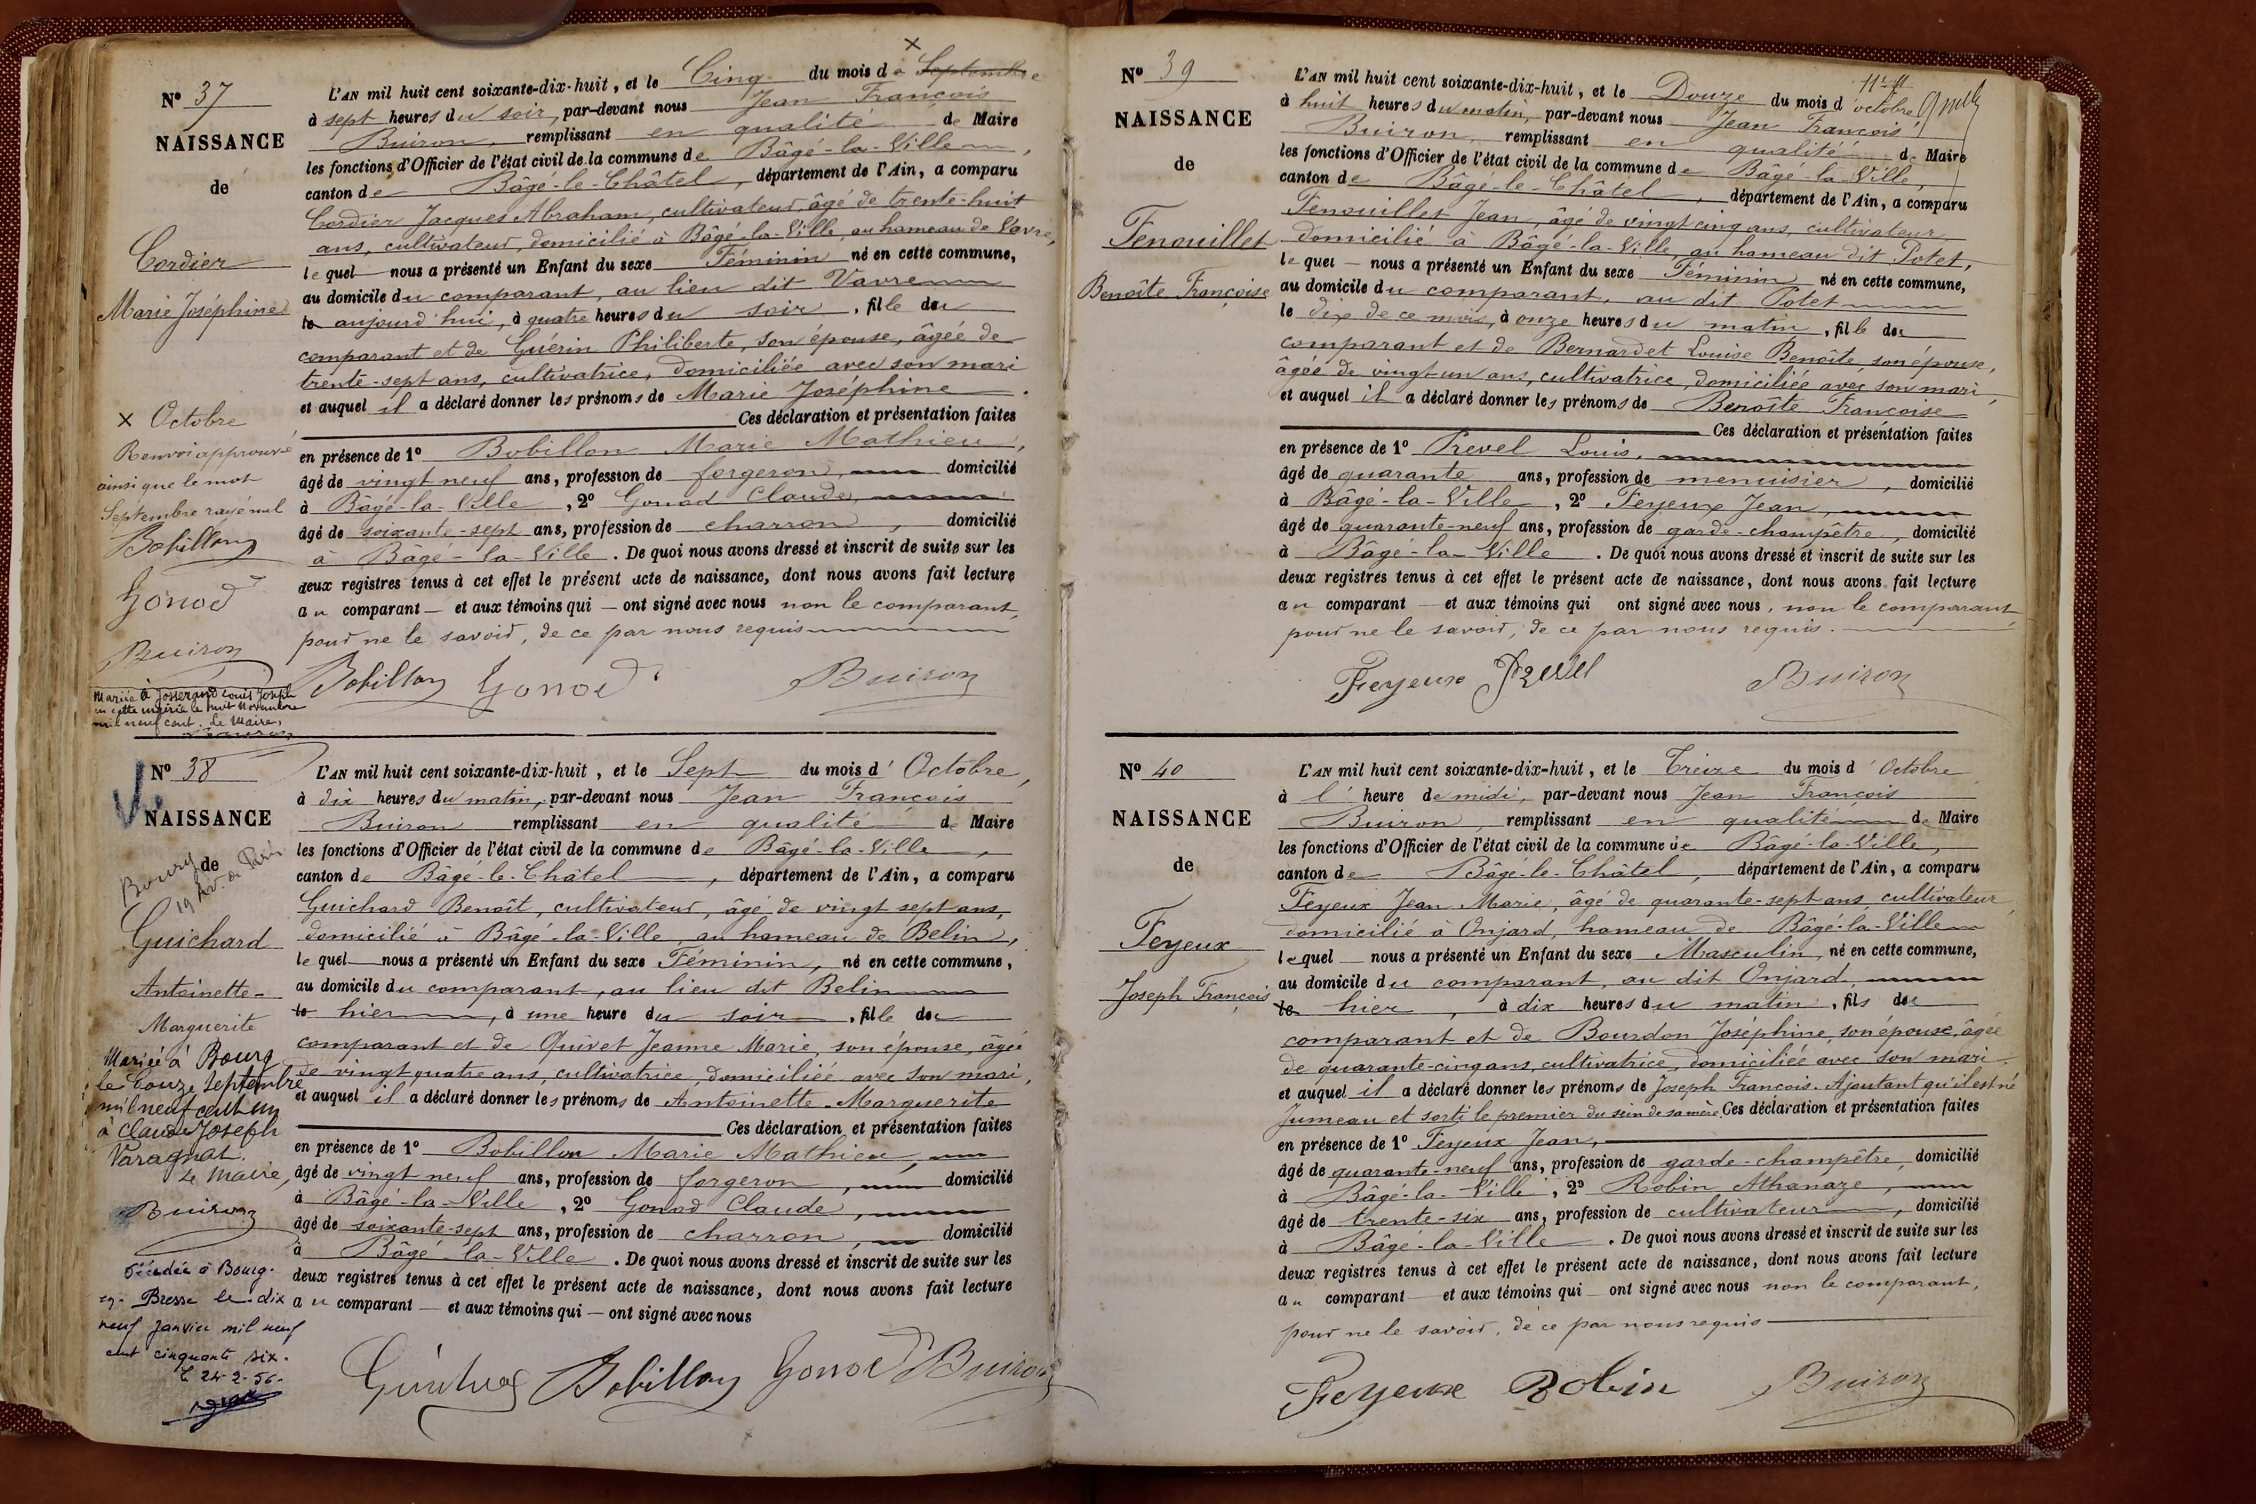 N° 37
NAISSANCE
de
Cordier
Marie Joséphine
× Octobre
Renvoi approuvé
ainsi que le mot
Septembre rayé nul
Bobillon
Gonod
Buiron
Mariée à Josserand Louis Joseph
en cette mairie le huit Novembre
mil neuf cent. Le Maire,
×
L'AN mil huit cent soixante-dix-huit, et le Cinq du mois de Septembre
à sept heures du soir, par-devant nous Jean François
Buiron, remplissant en qualité de Maire
les fonctions d'Officier de l'état civil de la commune de Bâgé-la-Ville,
canton de Bâgé-le-Châtel, département de l'Ain, a comparu
Cordier Jacques Abraham, cultivateur, âgé de trente-huit
ans, cultivateur, domicilié à Bâgé-la-Ville, au hameau de Vavre,
lequel nous a présenté un Enfant du sexe Féminin né en cette commune,
au domicile du comparant, au lieu dit Vavre
le aujourd'hui, à quatre heures du soir, fille du
comparant et de Guérin Philiberte, son épouse, âgée de
trente-sept ans, cultivatrice, domiciliée avec son mari
et auquel il a déclaré donner les prénoms de Marie Joséphine.
Ces déclaration et présentation faites
en présence de 1° Bobillon Marie Mathieu,
âgé de vingt neuf ans, profession de forgeron, domicilié
à Bâgé-la-Ville, 2° Gonod Claude,
âgé de soixante-sept ans, profession de charron, domicilié
à Bâgé-la-Ville. De quoi nous avons dressé et inscrit de suite sur les
deux registres tenus à cet effet le présent acte de naissance, dont nous avons fait lecture
au comparant — et aux témoins qui — ont signé avec nous non le comparant,
pour ne le savoir, de ce par nous requis
Bobillon Gonod Buiron
N° 38
NAISSANCE
de
Bourg
19 Av. de Paris
Guichard
Antoinette-
Marguerite
Mariée à Bourg
le douze Septembre
mil neuf cent un
à Claude Joseph
Varagnat.
Le Maire,
Buiron
Décédée à Bourg-
en-Bresse le dix
neuf janvier mil neuf
cent cinquante six.
24-2-56.
L'AN mil huit cent soixante-dix-huit, et le Sept du mois d'Octobre,
à dix heures du matin, par-devant nous Jean François
Buiron remplissant en qualité de Maire
les fonctions d'Officier de l'état civil de la commune de Bâgé-la-Ville,
canton de Bâgé-le-Châtel, département de l'Ain, a comparu
Guichard Benoît, cultivateur, âgé de vingt sept ans,
domicilié à Bâgé-la-Ville, au hameau de Belin,
lequel nous a présenté un Enfant du sexe Féminin, né en cette commune,
au domicile du comparant, au lieu dit Belin
le hier, à une heure du soir, fille du
comparant et de Quivet Jeanne Marie, son épouse, âgée
de vingt quatre ans, cultivatrice, domiciliée avec son mari,
et auquel il a déclaré donner les prénoms de Antoinette-Marguerite
Ces déclaration et présentation faites
en présence de 1° Bobillon Marie Mathieu,
âgé de vingt neuf ans, profession de forgeron, domicilié
à Bâgé-la-Ville, 2° Gonod Claude,
âgé de soixante-sept ans, profession de charron, domicilié
à Bâgé-la-Ville. De quoi nous avons dressé et inscrit de suite sur les
deux registres tenus à cet effet le présent acte de naissance, dont nous avons fait lecture
au comparant — et aux témoins qui — ont signé avec nous
Guichard Bobillon Gonod Buiron
N° 39
NAISSANCE
de
Fenouillet
Benoîte Françoise
L'AN mil huit cent soixante-dix-huit, et le Douze du mois d'octobre
à huit heures du matin, par-devant nous Jean François
Buiron, remplissant en qualité de Maire
les fonctions d'Officier de l'état civil de la commune de Bâgé-la-Ville,
canton de Bâgé-le-Châtel, département de l'Ain, a comparu
Fenouillet Jean, âgé de vingt cinq ans, cultivateur
domicilié à Bâgé-la-Ville, au hameau dit Potet,
lequel — nous a présenté un Enfant du sexe Féminin né en cette commune,
au domicile du comparant, au dit Potet
le dix de ce mois, à onze heures du matin, fille du
comparant et de Bernardet Louise Benoîte, son épouse,
âgée de vingt un ans, cultivatrice, domiciliée avec son mari,
et auquel il a déclaré donner les prénoms de Benoîte Françoise
Ces déclaration et présentation faites
en présence de 1° Prevel Louis,
âgé de quarante ans, profession de menuisier, domicilié
à Bâgé-la-Ville, 2° Feyeux Jean,
âgé de quarante-neuf ans, profession de garde-champêtre, domicilié
à Bâgé-la-Ville. De quoi nous avons dressé et inscrit de suite sur les
deux registres tenus à cet effet le présent acte de naissance, dont nous avons fait lecture
au comparant — et aux témoins qui ont signé avec nous, non le comparant
pour ne le savoir, de ce par nous requis.
Feyeux Prevel Buiron
N° 40
NAISSANCE
de
Feyeux
Joseph François
L'AN mil huit cent soixante-dix-huit, et le Treize du mois d'Octobre
à l' heure de midi, par-devant nous Jean François
Buiron, remplissant en qualité de Maire
les fonctions d'Officier de l'état civil de la commune de Bâgé-la-Ville,
canton de Bâgé-le-Châtel, département de l'Ain, a comparu
Feyeux Jean Marie, âgé de quarante-sept ans, cultivateur
domicilié à Onjard, hameau de Bâgé-la-Ville
lequel — nous a présenté un Enfant du sexe Masculin, né en cette commune,
au domicile du comparant, au dit Onjard,
le hier, à dix heures du matin, fils du
comparant et de Bourdon Joséphine, son épouse, âgée
de quarante-cinq ans, cultivatrice, domiciliée avec son mari
et auquel il a déclaré donner les prénoms de Joseph François. Ajoutant qu'il est né
Jumeau et sorti le premier du sein de sa mère Ces déclaration et présentation faites
en présence de 1° Feyeux Jean,
âgé de quarante-neuf ans, profession de garde-champêtre, domicilié
à Bâgé-la-Ville, 2° Robin Athanaze,
âgé de trente-six ans, profession de cultivateur, domicilié
à Bâgé-la-Ville. De quoi nous avons dressé et inscrit de suite sur les
deux registres tenus à cet effet le présent acte de naissance, dont nous avons fait lecture
au comparant — et aux témoins qui — ont signé avec nous non le comparant,
pour ne le savoir, de ce par nous requis
Feyeux Robin Buiron